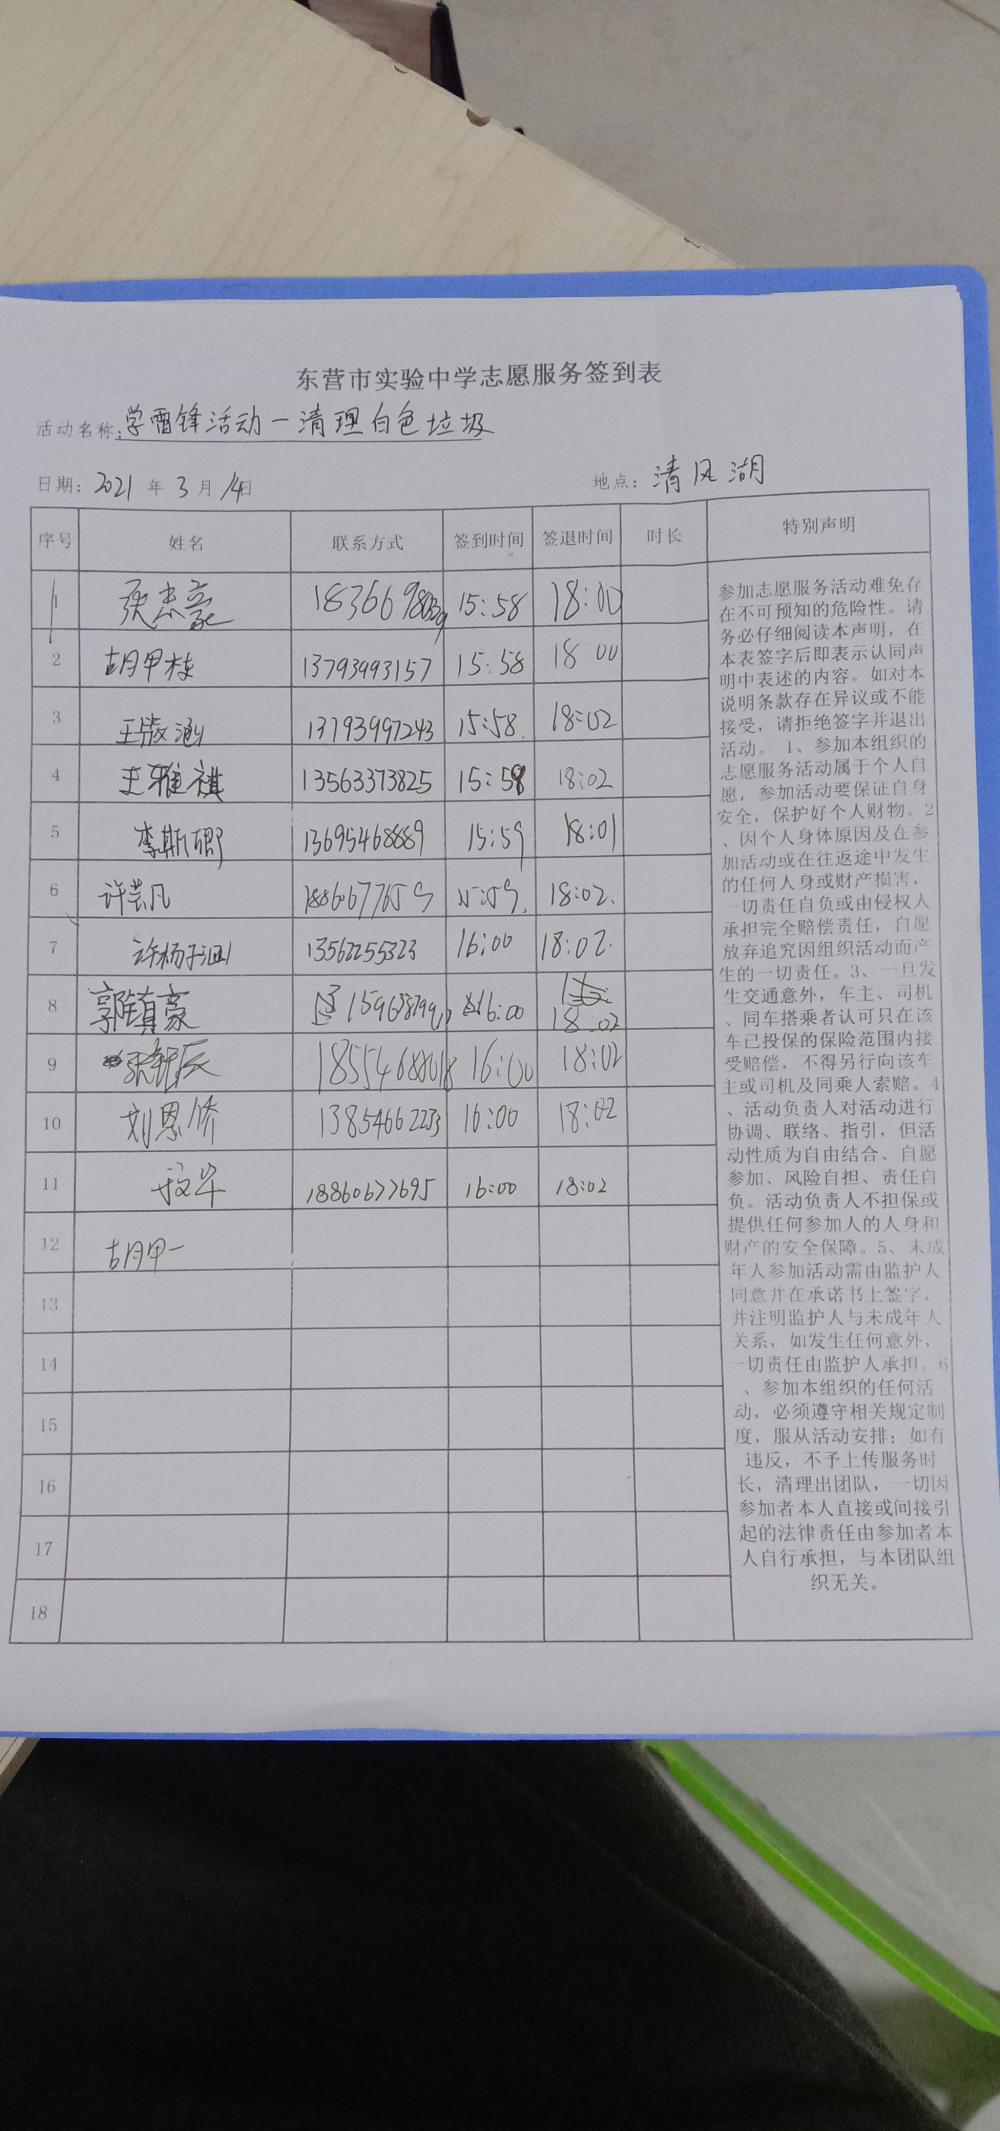 东营市实验中学志愿服务签到表
活动名称:学雷锋活动一清理白色垃圾
日期: 2021 年 3 月 14日 地点: 清风湖
序号 姓名 联系方式 签到时间 签退时间 时长 特别声明
1 15:58 18:00
2 胡甲栋 13793993157 15:58 18:00
3 13793997243 15:58 18:02
4 王雅祺 13563373825 15:58 18:02
5 李斯卿 13695468889 15:59 18:01
6 许芸凡 15:59 18:02
7 许杨子涵 13562255323 16:00 18:02
8 郭镇豪 16:00 18:02
9 16:00 18:02
10 刘恩侨 13854662253 16:00 18:02
11 18860677695 16:00 18:02
12 胡甲一
13
14
15
16
17
18
参加志愿服务活动难免存
在不可预知的危险性。请
务必仔细阅读本声明，在
本表签字后即表示认同声
明中表述的内容。如对本
说明条款存在异议或不能
接受，请拒绝签字并退出
活动。 1、参加本组织的
志愿服务活动属于个人自
愿，参加活动要保证自身
安全，保护好个人财物。2
、因个人身体原因及在参
加活动或在往返途中发生
的任何人身或财产损害，
一切责任自负或由侵权人
承担完全赔偿责任，自愿
放弃追究因组织活动而产
生的一切责任。3、一旦发
生交通意外，车主、司机
、同车搭乘者认可只在该
车已投保的保险范围内接
受赔偿，不得另行向该车
主或司机及同乘人索赔。4
、活动负责人对活动进行
协调、联络、指引，但活
动性质为自由结合、自愿
参加、风险自担、责任自
负。活动负责人不担保或
提供任何参加人的人身和
财产的安全保障。5、未成
年人参加活动需由监护人
同意并在承诺书上签字，
并注明监护人与未成年人
关系，如发生任何意外，
一切责任由监护人承担。6
、参加本组织的任何活
动，必须遵守相关规定制
度，服从活动安排；如有
违反，不予上传服务时
长，清理出团队，一切因
参加者本人直接或间接引
起的法律责任由参加者本
人自行承担，与本团队组
织无关。